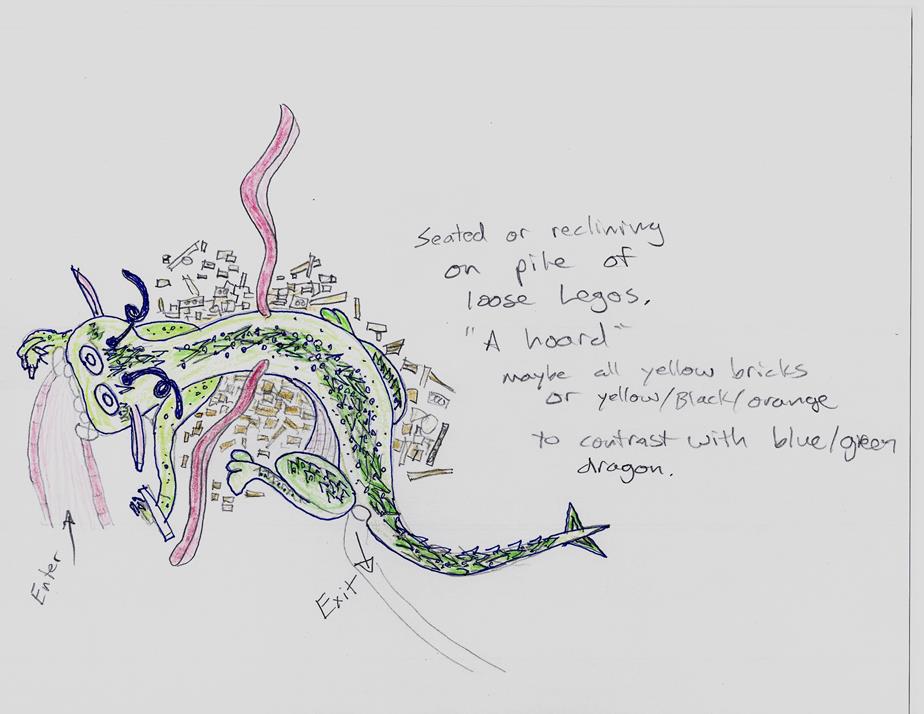 Seated or reclining
on pile of
loose Legos.
"A hoard"
maybe all yellow bricks
or yellow/Black/orange
to contrast with blue/green
dragon.
Enter
Exit